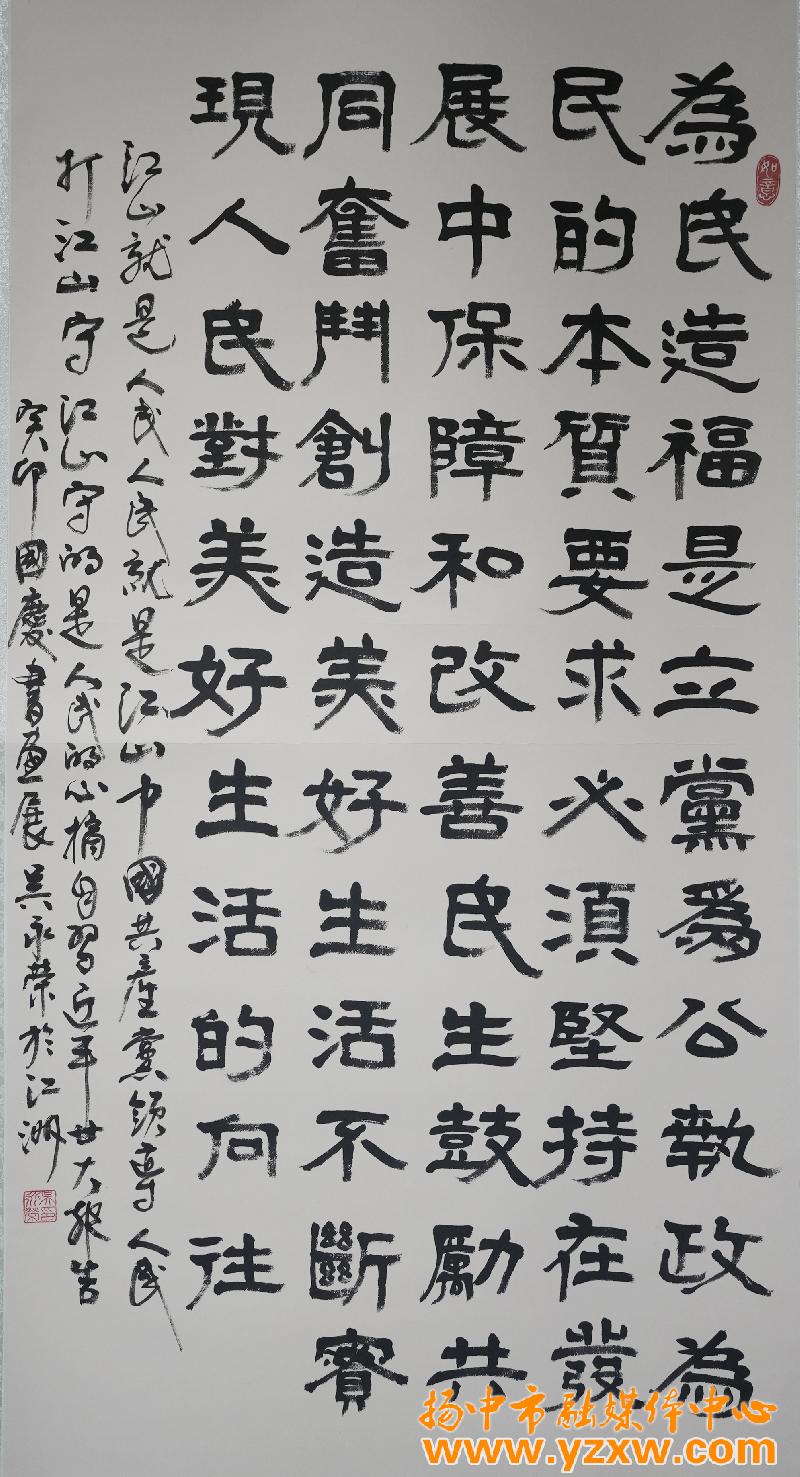 如意
為民造福是立黨為公執政為
民的本質要求必須堅持在發
展中保障和改善民生鼓勵共
同奮鬥創造美好生活不斷實
現人民對美好生活的向往
江山就是人民人民就是江山中國共產黨領導人民
打江山守江山守的是人民的心摘自習近平廿大報告
癸卯國慶書畫展吳永榮於江洲
扬中市融媒体中心
www.yzxw.com